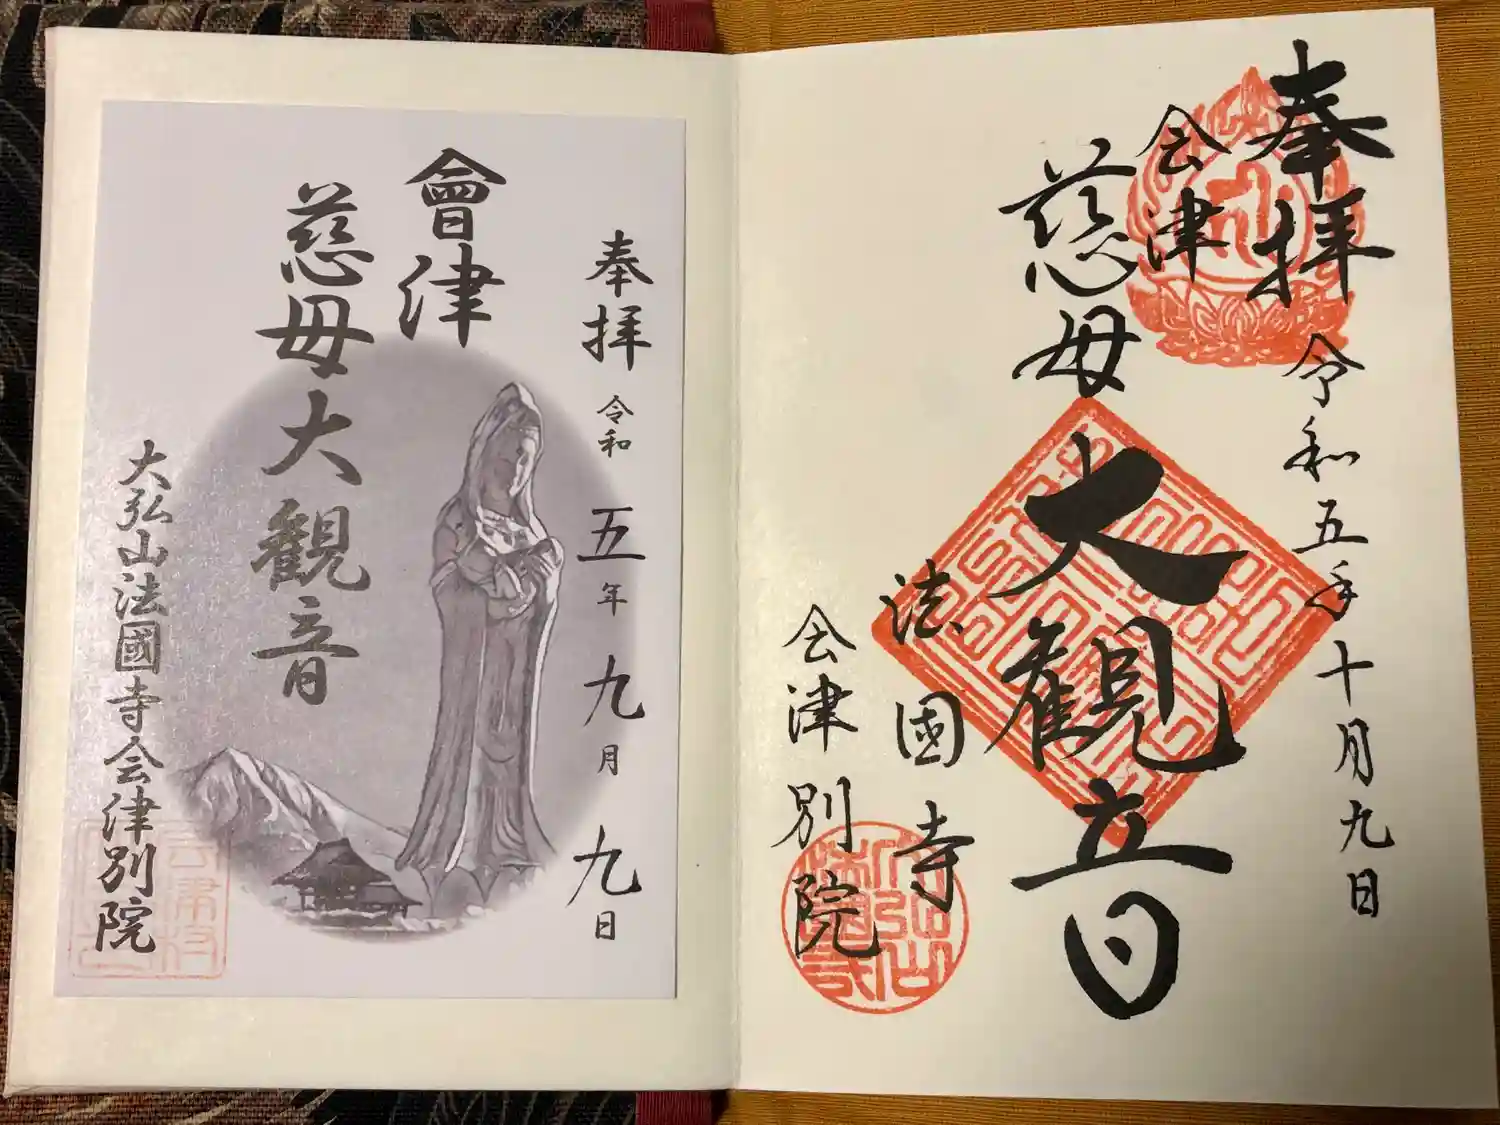 奉拝 令和五年十月九日
会津
慈母大観音
法国寺
会津別院
奉拝 令和 五年 九月 九日
會津
慈母大観音
大弘山法國寺会津別院